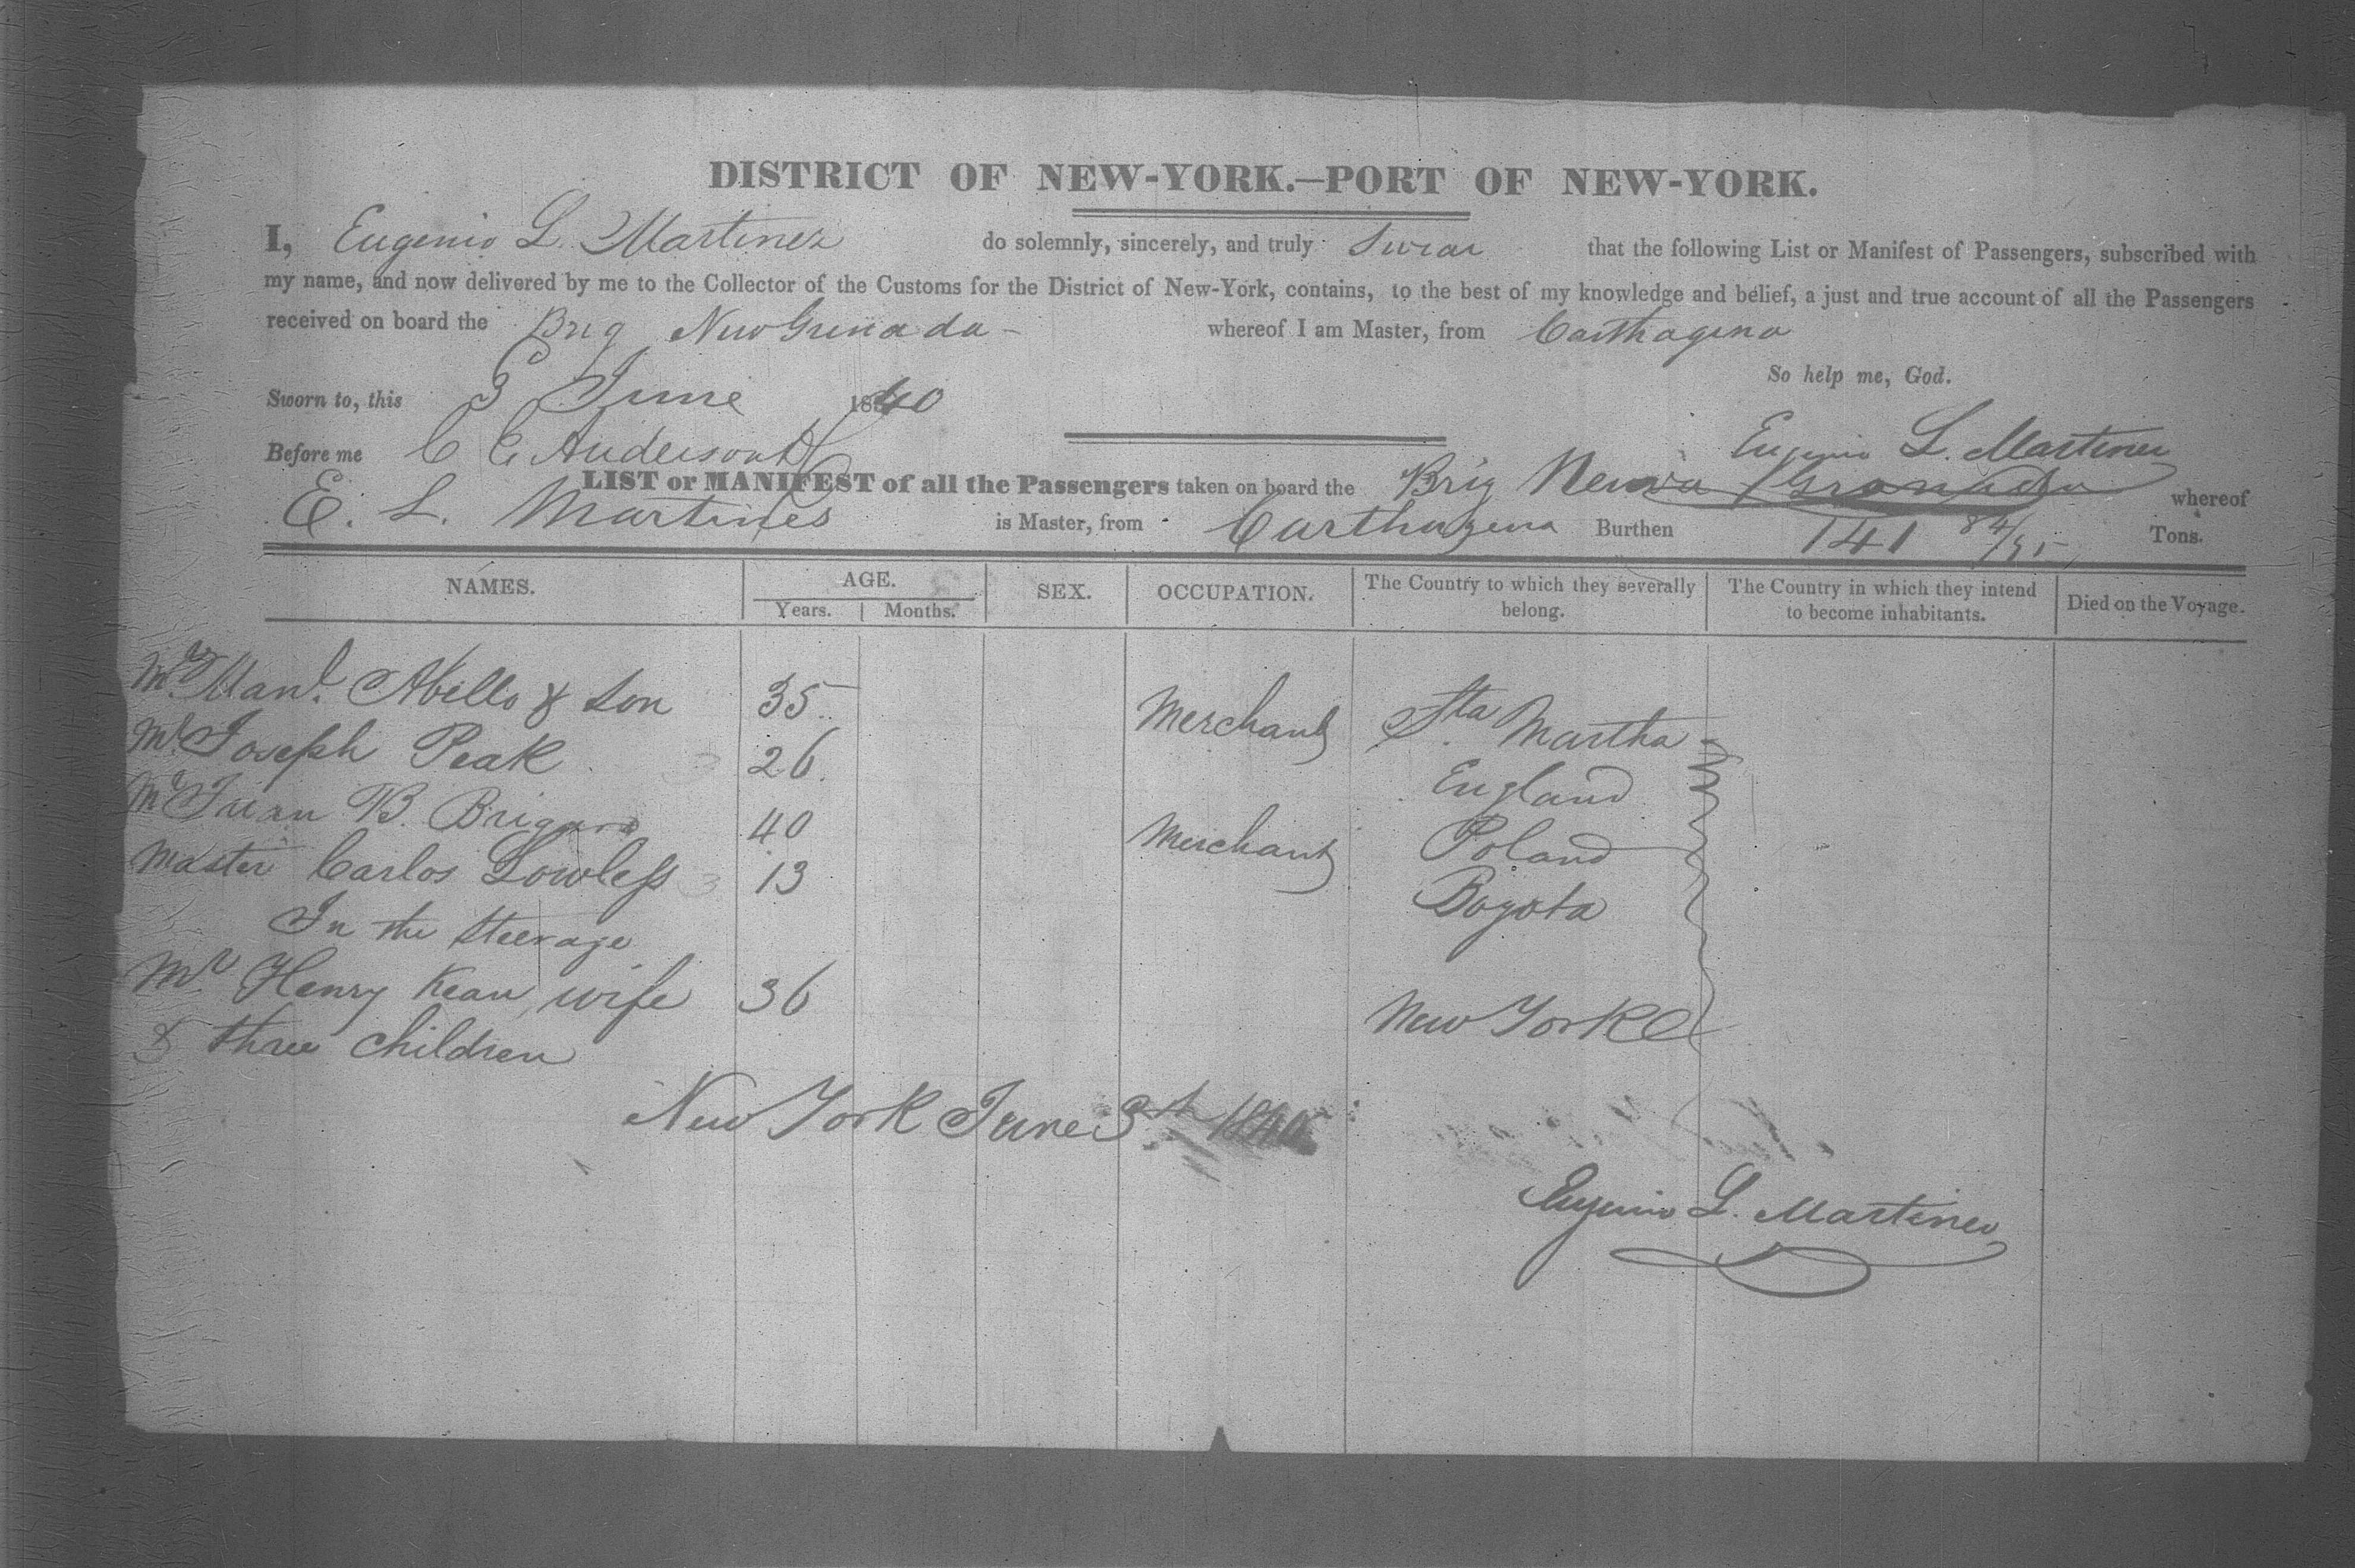 DISTRICT OF NEW-YORK.—PORT OF NEW-YORK.
I, Eugenio L. Martinez do solemnly, sincerely, and truly swear that the following List or Manifest of Passengers, subscribed with
my name, and now delivered by me to the Collector of the Customs for the District of New-York, contains, to the best of my knowledge and belief, a just and true account of all the Passengers
received on board the Brig New Grenada - whereof I am Master, from Carthagena
So help me, God.
Sworn to, this 3 June 1840
Eugenio L. Martinez
Before me C C Anderson
LIST or MANIFEST of all the Passengers taken on board the Brig Neuva Granada whereof
E. L. Martines is Master, from Carthagena Burthen 141 84/95 Tons.
NAMES. AGE. SEX. OCCUPATION. The Country to which they severally belong. The Country in which they intend to become inhabitants. Died on the Voyage.
Years. Months.
Mr Manl. Abello & Son 35 Merchant Sta Martha
Mr Joseph Peak 26 England
Mr Juan B. 40 Merchant Poland
Master Carlos Lowless 13 Bogota
In the Steerage
Mr Henry Kean, wife 36 New York
& three children
New York June 3th 1840
Eugenio L. Martinez